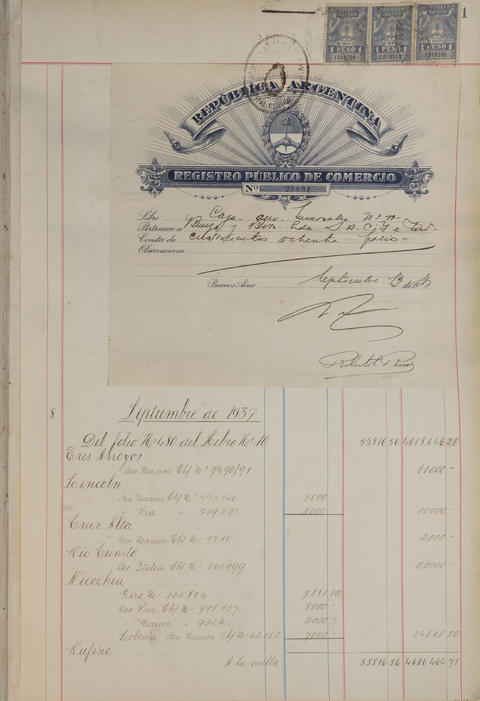 1
1 PESO 1
1 PESO 1
1 PESO 1
REPÚBLICA ARGENTINA
REGISTRO PÚBLICO DE COMERCIO
Nº
Libro Caja Sucursales Nº
Pertenece a Bunge y Born Ltda S.A.C.F.
Consta de cuatrocientos ochenta folios
Observaciones
Buenos Aires Septiembre 13 de
8 Septiembre de 1937
Del folio Nº 480 del Libro Nº 10 55816 56 4618646 21
Tres Arroyos
Bco Nación Chj Nº 9490/91 11000 -
Lincoln
Bco Nación Chj Nº 5000 -
" " 5000 - 10000 -
Cruz Alta
Bco Nación Chj Nº 9716 2000 -
Río Cuarto
Bco Italia Chj Nº 560099 20000 -
Necochea
Giro Nº 125824 7818 50
Bco Chj Nº 995557 8000 -
" Nación " 9324 2000 -
Bco Nación Chj Nº 62152 7000 - 24818 50
Rufino
A la vuelta 55816 56 4686464 71